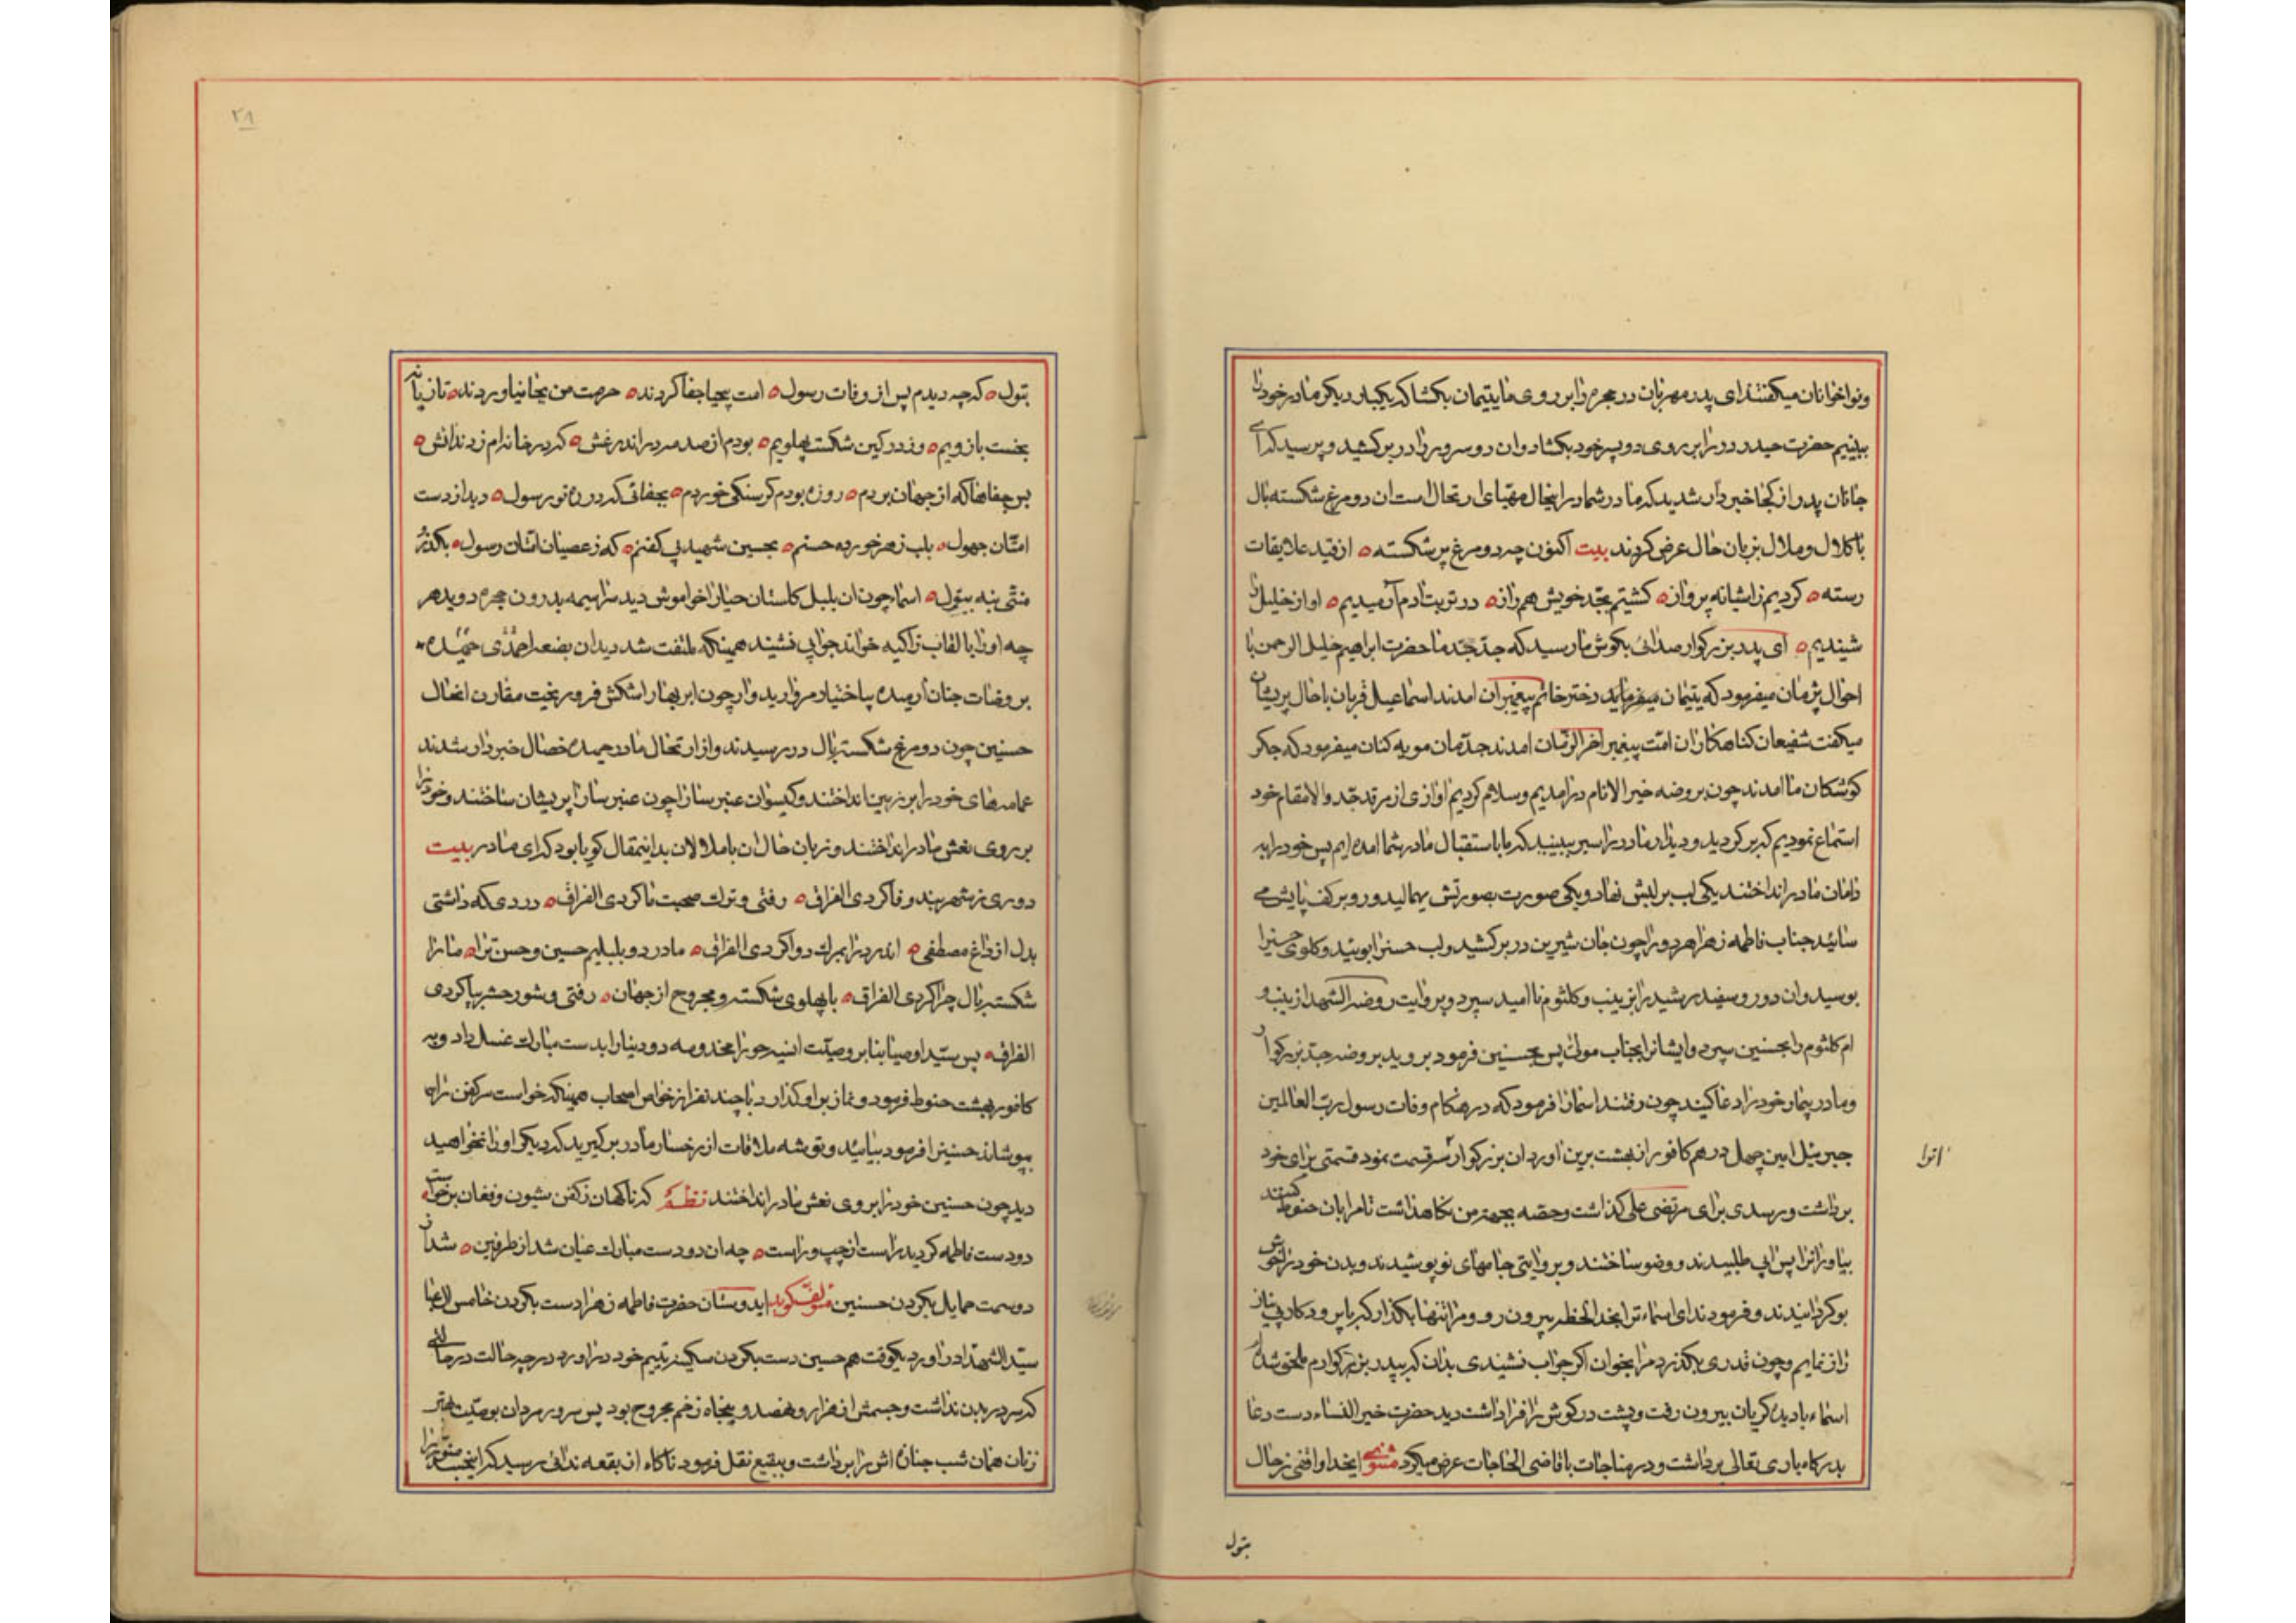 ونواخوانان میکفتند ای پدر مهربان در حجره را بر روی ما یتیمان بکشا که یکبار دیکر مادر خود را
ببینیم حضرت حیدر در را بر روی دو پسر خود بکشاد و ان دو سرور را در بر کشید و پرسید که ای
جانان پدر از کجا خبردار شدید که مادر شما در اینحال مهیای ارتحال است ان دو مرغ شکسته بال
با کلال و ملال بزبان حال عرض کردند بیت اکنون چه دو مرغ پر شکسته از قید علایقات
رسته کردیم ز اشیانه پرواز کشتیم بجد خویش همراز در تربت ادم آرمیدیم اواز خلیل را
شنیدیم ای پدر بزرکوار صدائی بکوش ما رسید که جد جد ما حضرت ابراهیم خلیل الرحمن با
احوال پژمان میفرمود که یتیمان دختر خاتم پیغمبران امدند اسماعیل قربان با حال پریشان
میکفت شفیعان کناهکاران امت پیغمبر اخر الزمان امدند جدمان مویه کنان میفرمود که جکر
کوشکان ما امدند چون بروضه خیر الانام در امدیم و سلام کردیم اوازی از مرقد جد والامقام خود
استماع نمودیم که بر کردید و دیدار مادر را سیر ببینید که ما باستقبال مادر شما امده ایم پس خود را به
دامان مادر انداختند یکی لب بر لبش نهاد و یکی صورت بصورتش میمالید و رو بر کف پایش می
سائید جناب فاطمه زهرا هر دو را چون جان شیرین در بر کشید و لب حسن را بوئید و کلوی حسین را
بوسید و ان دو رو سفید رشید را بزینب و کلثوم نا امید سپرد و بروایت روضة الشهدا زینب و
ام کلثوم را بحسنین سپرد و ایشانرا بجناب مولی پس بحسنین فرمود بروید بروضه جد بزرکوار
و مادر بیمار خود را دعا کنید چون رفتند اسما را فرمود که در هنکام وفات رسول رب العالمین
جبرئیل امین چهل درهم کافور از بهشت برین اورد ان بزرکوار سه قسمت نمود قسمتی برای خود
برداشت و رسدی برای مرتضی علی کذاشت و حصه بجهة من نکاهداشت تا مرا بان حنوط کنند
بیاور انرا پس ابی طلبیدند و وضو ساختند و بروایتی جامهای نو پوشیدند و بدن خود را خوش
بو کردانیدند و فرمودند ای اسماء ترا بخدا لحظه بیرون رو و مرا تنها بکذار که با پرورد کار بی نیاز
راز نمایم و چون قدری بکذرد مرا بخوان اکر جواب نشنیدی بدان که بپدر بزرکوارم ملحق شده ام
اسماء با دیده کریان بیرون رفت و پشت در کوش را فرا داشت دید حضرت خیر النساء دست دعا
بدرکاه باری تعالی برداشت و در مناجات با قاضی الحاجات عرض میکرد مثنوی ایخدا واقفی ز حال
بتول
۲۸
بتول که چه دیدم پس از وفات رسول امت بیحیا جفا کردند حرمت من بجا نیاوردند تازیانه
بخست بازویم وز در کین شکست پهلویم بودم از صدمه در اندر غش که در خانه ام زدند آتش
بس جفاها که از جهان بردم روزه بودم کرسنکی خوردم بجفائی که در ره تو رسول دید از دست
امتان جهول بلب زهر خورده حسنم بحسین شهید بی کفنم که ز عصیان امتان رسول بکذر
منتی بنه ببتول اسما چون ان بلبل کلستان حیا را خاموش دید سراسیمه بدرون حجره دوید هر
چه او را بالقاب زاکیه خواند جوابی نشنید همینکه ملتفت شد دید ان بضعه احمدی خمیده
بروضات جنان ارمیده بی اختیار مروارید وار چون ابر بهار اشکش فرو ریخت مقارن انحال
حسنین چون دو مرغ شکسته بال در رسیدند و از ارتحال مادر حمیده خصال خبردار شدند
عمامه های خود را بر زمین انداختند و کیسوان عنبر سا را چون عنبر سارا پریشان ساختند و خود را
بر روی نعش مادر انداختند و زبان حال ان با ملالان بدینمقال کویا بود که ای مادر بیت
دوری ز شهر بند وفا کردی الفراق رفتی و ترک صحبت ما کردی الفراق دردی که داشتی
بدل از داغ مصطفی اندرد را بمرک دوا کردی الفراق مادر دو بلبلیم حسین و حسن ترا ما را
شکسته بال چرا کردی الفراق با پهلوی شکسته و مجروح از جهان رفتی و شور حشر بپا کردی
الفراق پس سید اوصیا بنا بر وصیت انسیه حورا مخدومه دو دینا را بدست مبارک غسل داد و به
کافور بهشت حنوط فرمود و نماز بر او کذارد با چند نفر از خواص اصحاب همینکه خواست سر کفن را
بپوشاند حسنین را فرمود بیائید و توشه ملاقات از رخسار مادر بر کیرید که دیکر او را نخواهید
دید چون حسنین خود را بر روی نعش مادر انداختند نظم که ناکهان ز کفن شیون و فغان برخواست
دو دست فاطمه کردید راست از چپ و راست چه ان دو دست مبارک عیان شد از طرفین شد ان
دو دست حمایل بکردن حسنین مولف کوید ایدوستان حضرت فاطمه زهرا دست بکردن خامس ال عبا
سید الشهدا در اورد یکوقت هم حسین دست بکردن سکینه یتیم خود در اورد در چه حالت در حالتی
که سر در بدن نداشت و جسمش از هزار و نهصد و پنجاه زخم مجروح بود پس سرور مردان بوصیت بهتر
زنان همان شب جنازه اش را برداشت و ببقیع نقل فرمود ناکاه از بقعه ندائی رسید که